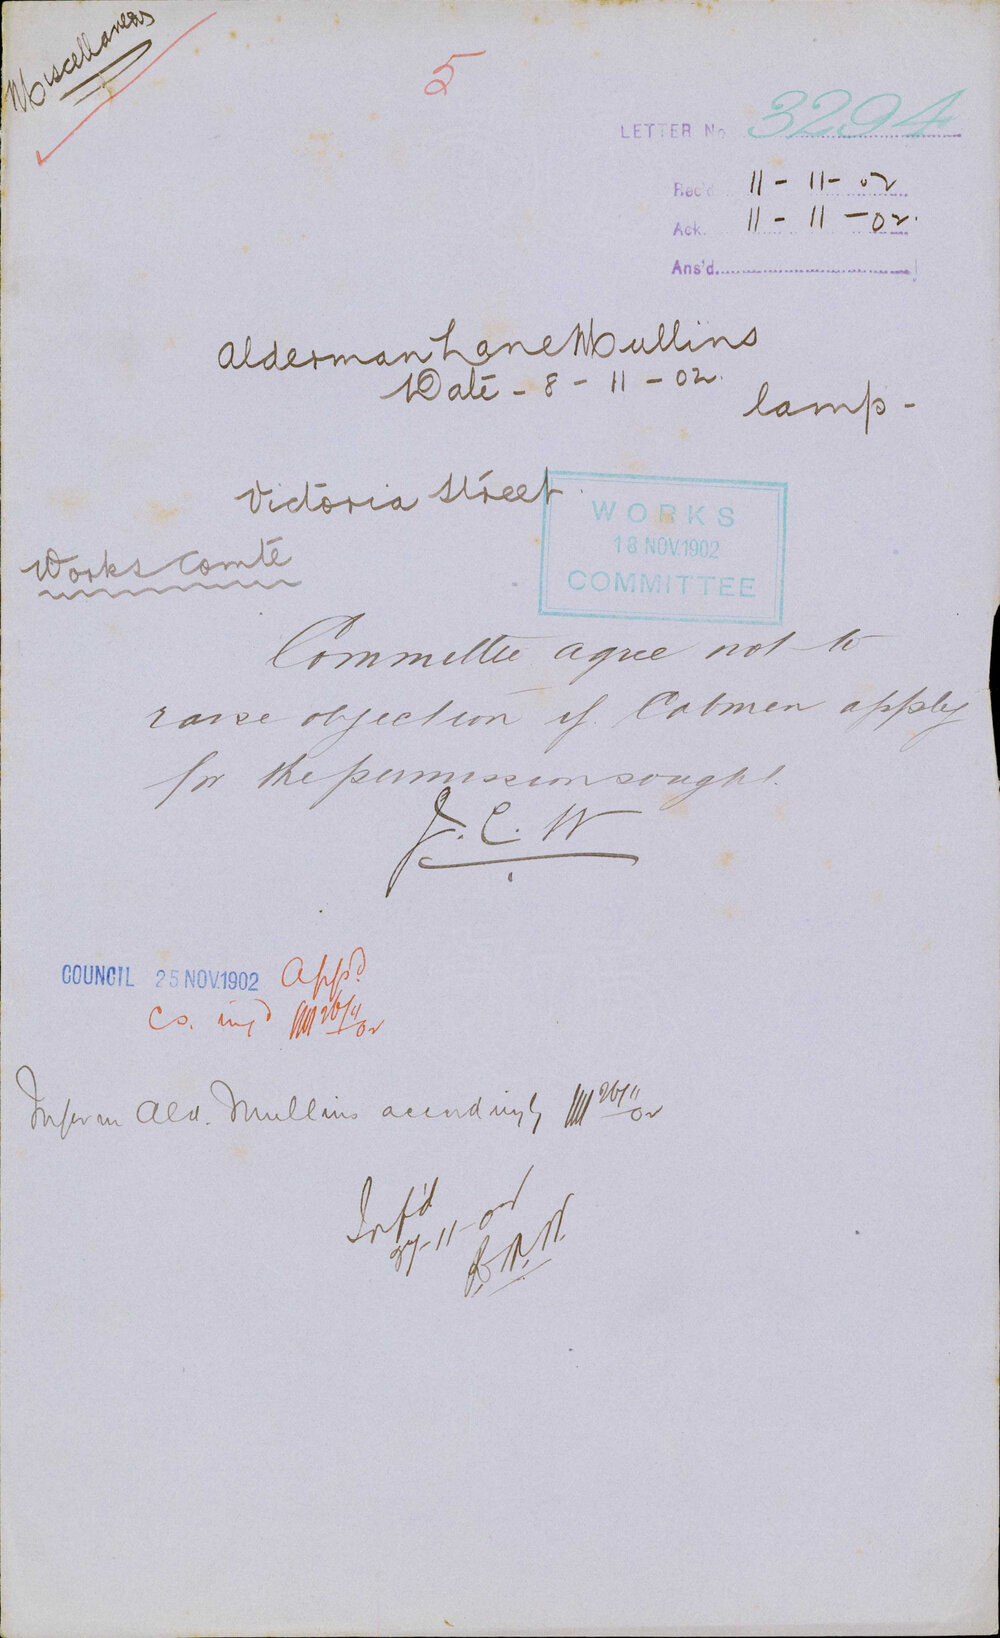 Miscellaneous
5
LETTER No 3294
Rec'd 11-11-02
Ack. 11-11-02.
Ans'd.
Alderman Lane Mullins
Date - 8-11-02.
lamp -
Victoria Street.
WORKS
18 NOV.1902
COMMITTEE
Works Comte
Committee agree not to
raise objection if Cabmen apply
for the permission sought.
J. C. W
COUNCIL 25 NOV.1902 App'd
C.S. inf'd 26/11/02
Inform Ald. Mullins accordingly 26/11/02
Inf'd
27-11-02